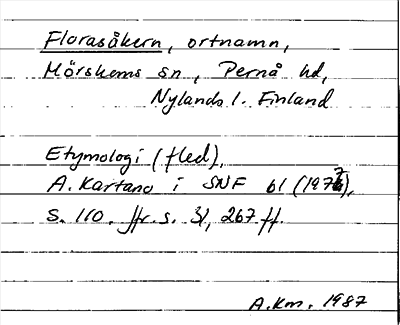 Florasåkern, ortnamn,
Mörskoms sn, Pernå hd,
Nylands l. Finland
Etymologi (fled),
A. Kartano i SNF 61 (1977),
s. 110. jfr. s. 31, 267 ff.
A.Km. 1987